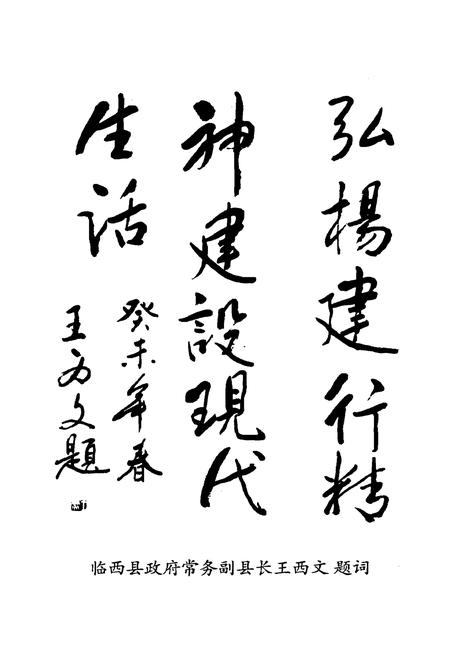 弘楊建行精
神建設現代
生话
癸未年春
王西文題
临西县政府常务副县长王西文 题词